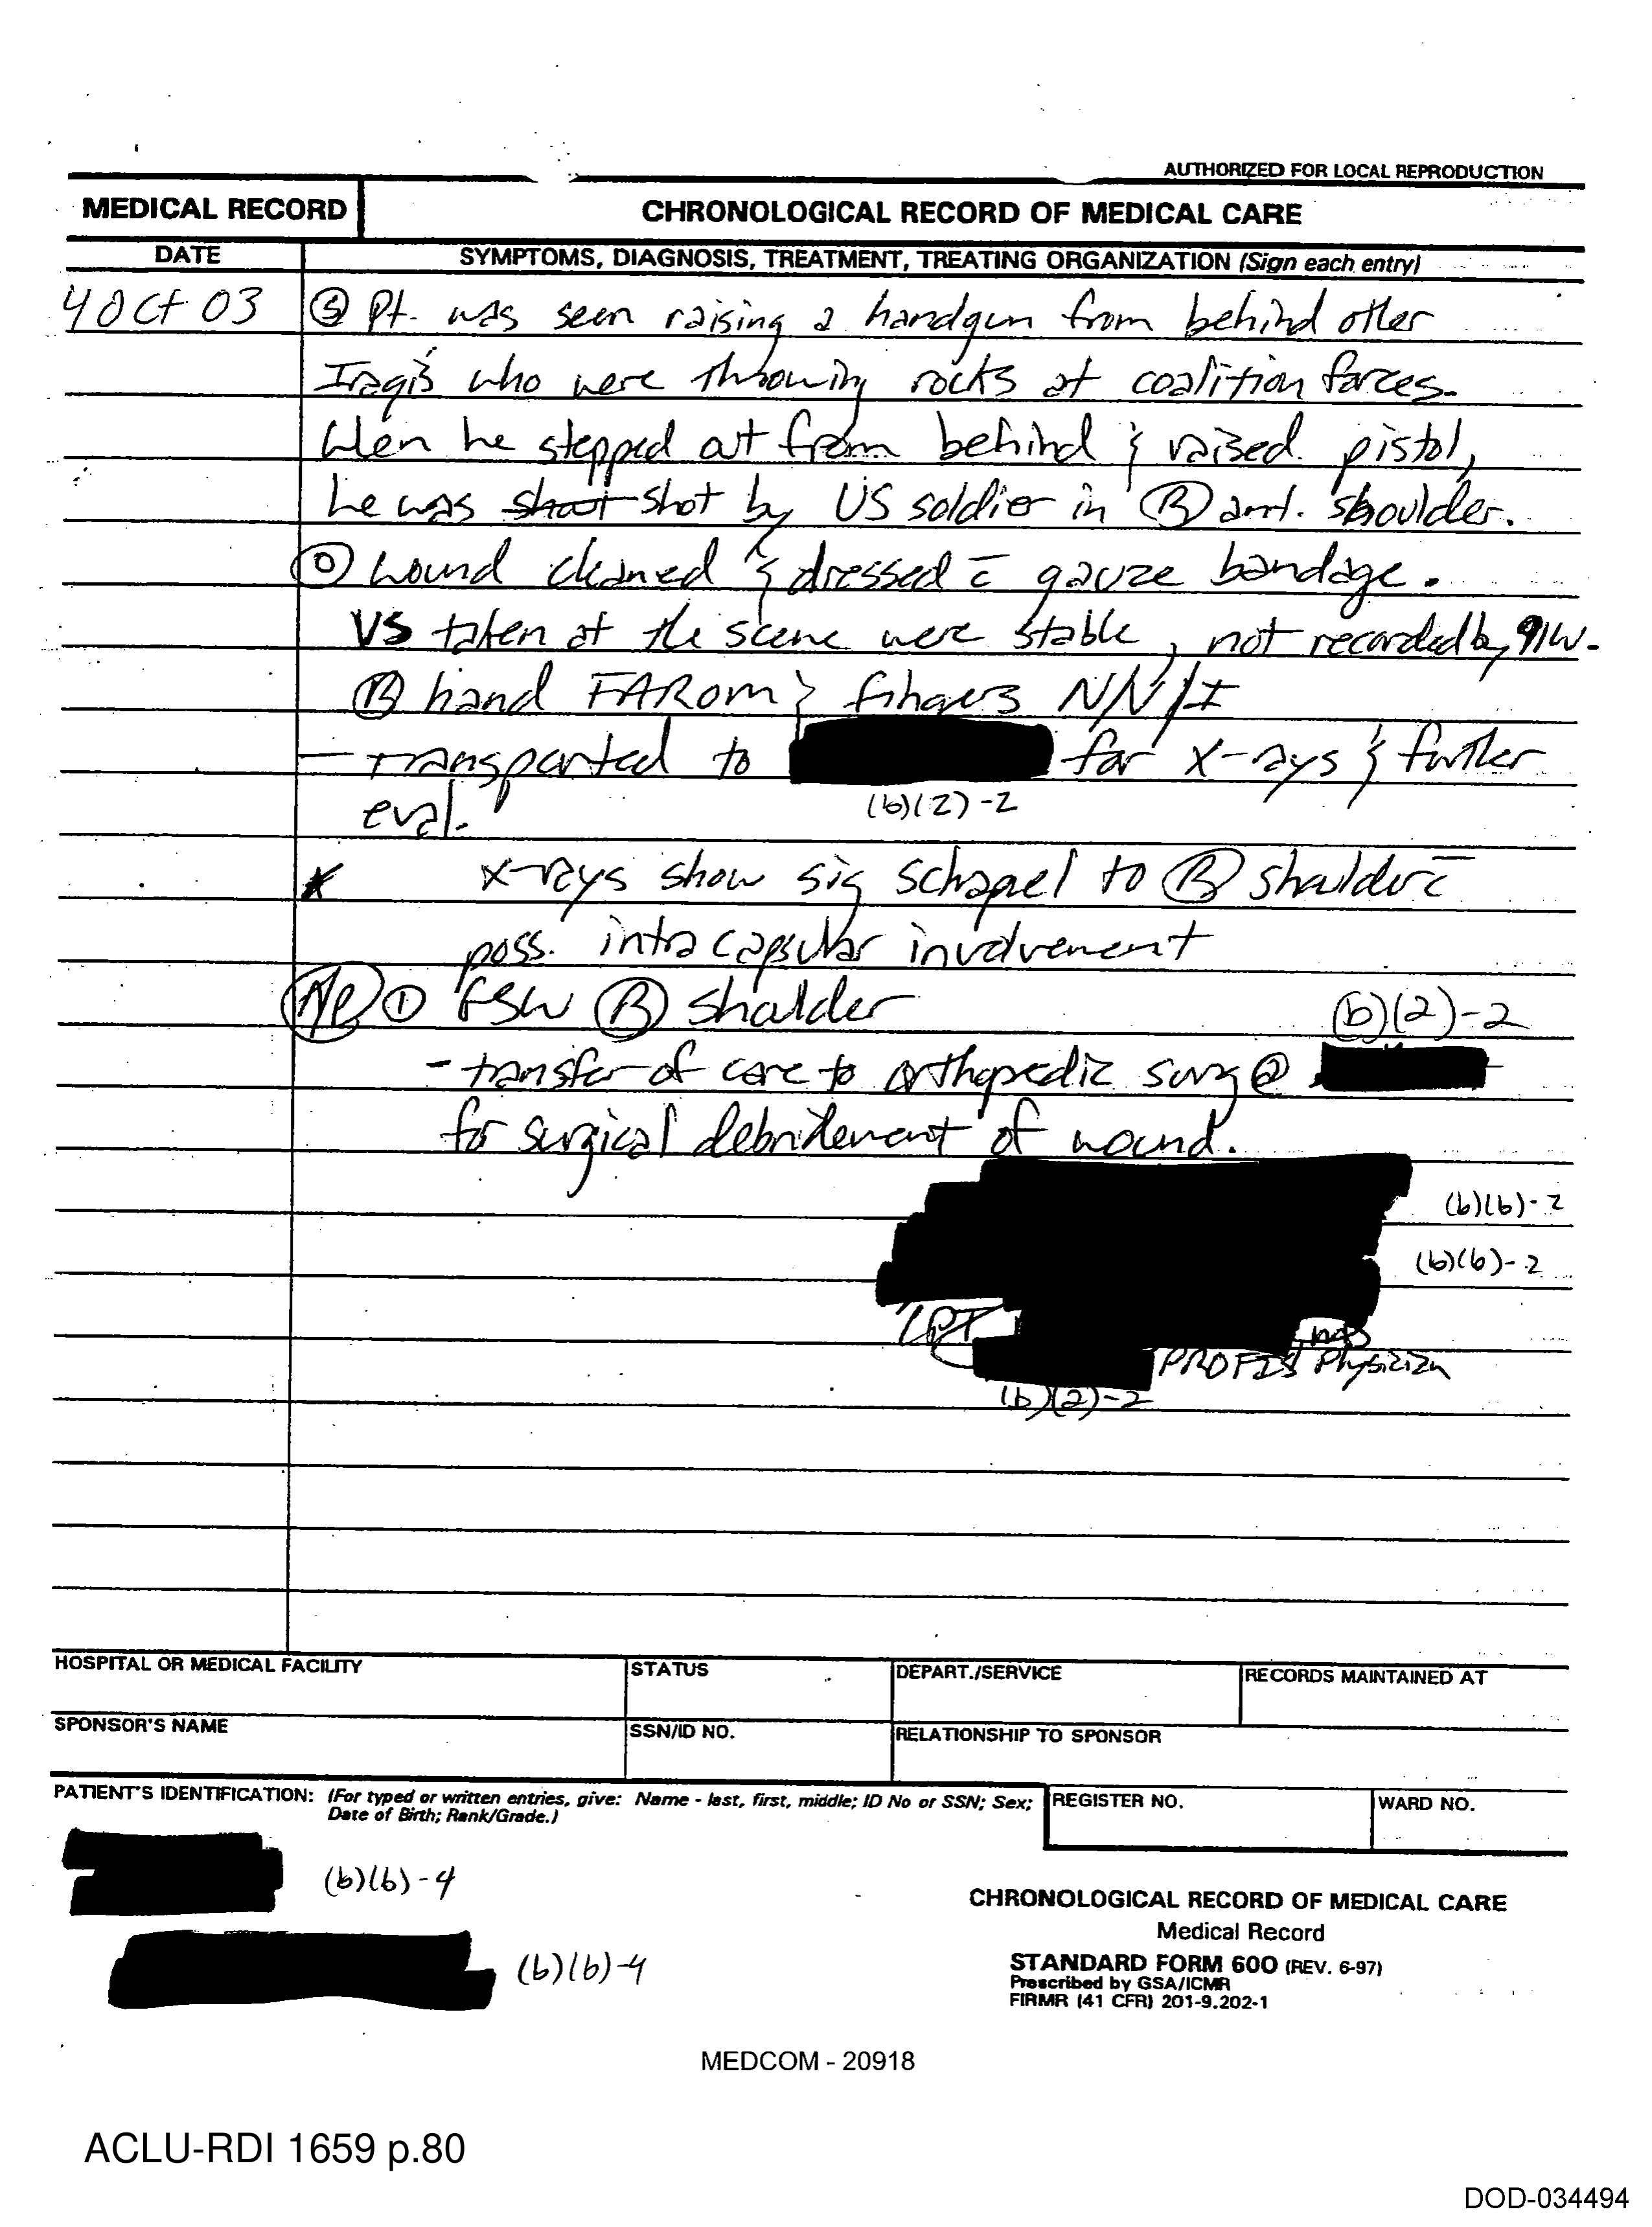 AUTHORIZED FOR LOCAL REPRODUCTION
MEDICAL RECORD
CHRONOLOGICAL RECORD OF MEDICAL CARE
DATE
SYMPTOMS, DIAGNOSIS, TREATMENT, TREATING ORGANIZATION (Sign each entry)
4 Oct 03 Ⓢ Pt. was seen raising a handgun from behind other
Iraqi's who were throwing rocks at coalition forces.
When he stepped out from behind & raised pistol,
he was shoot shot by US soldier in Ⓡ ant. shoulder.
Ⓞ wound cleaned & dressed c̄ gauze bandage.
VS taken at the scene were stable, not recorded by 91W-
Ⓡ hand FAROM & fingers NN/I
- transported to for x-rays & further
(b)(2)-2
eval.
* x-rays show sig schrapnel to Ⓡ shoulder c̄
poss. intracapsular involvement
A/P ① GSW Ⓡ shoulder
(b)(2)-2
- transfer of care to orthopedic surg @
for surgical debridement of wound.
(b)(6)-2
(b)(6)-2
CPT
PROFIS Physician
(b)(2)-2
HOSPITAL OR MEDICAL FACILITY
STATUS
DEPART./SERVICE
RECORDS MAINTAINED AT
SPONSOR'S NAME
SSN/ID NO.
RELATIONSHIP TO SPONSOR
PATIENT'S IDENTIFICATION: (For typed or written entries, give: Name - last, first, middle; ID No or SSN; Sex;
Date of Birth; Rank/Grade.)
REGISTER NO.
WARD NO.
(b)(6)-4
(b)(6)-4
CHRONOLOGICAL RECORD OF MEDICAL CARE
Medical Record
STANDARD FORM 600 (REV. 6-97)
Prescribed by GSA/ICMR
FIRMR (41 CFR) 201-9.202-1
MEDCOM - 20918
ACLU-RDI 1659 p.80
DOD-034494